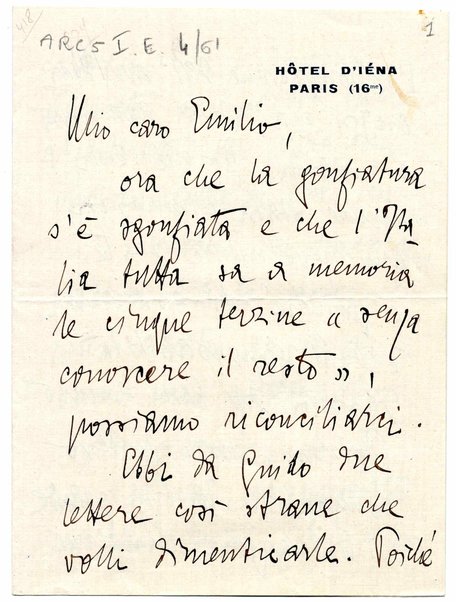 418
ARC5 I.E. 4/61
1
HÔTEL D'IÉNA
PARIS (16me)
Mio caro Emilio,
ora che la gonfiatura
s'è sgonfiata e che l'Ita
lia tutta sa a memoria
le cinque terzine « senza
conoscere il resto »,
possiamo riconciliarci.
Ebbi da Guido due
lettere così strane che
volli dimenticarle. Poiché